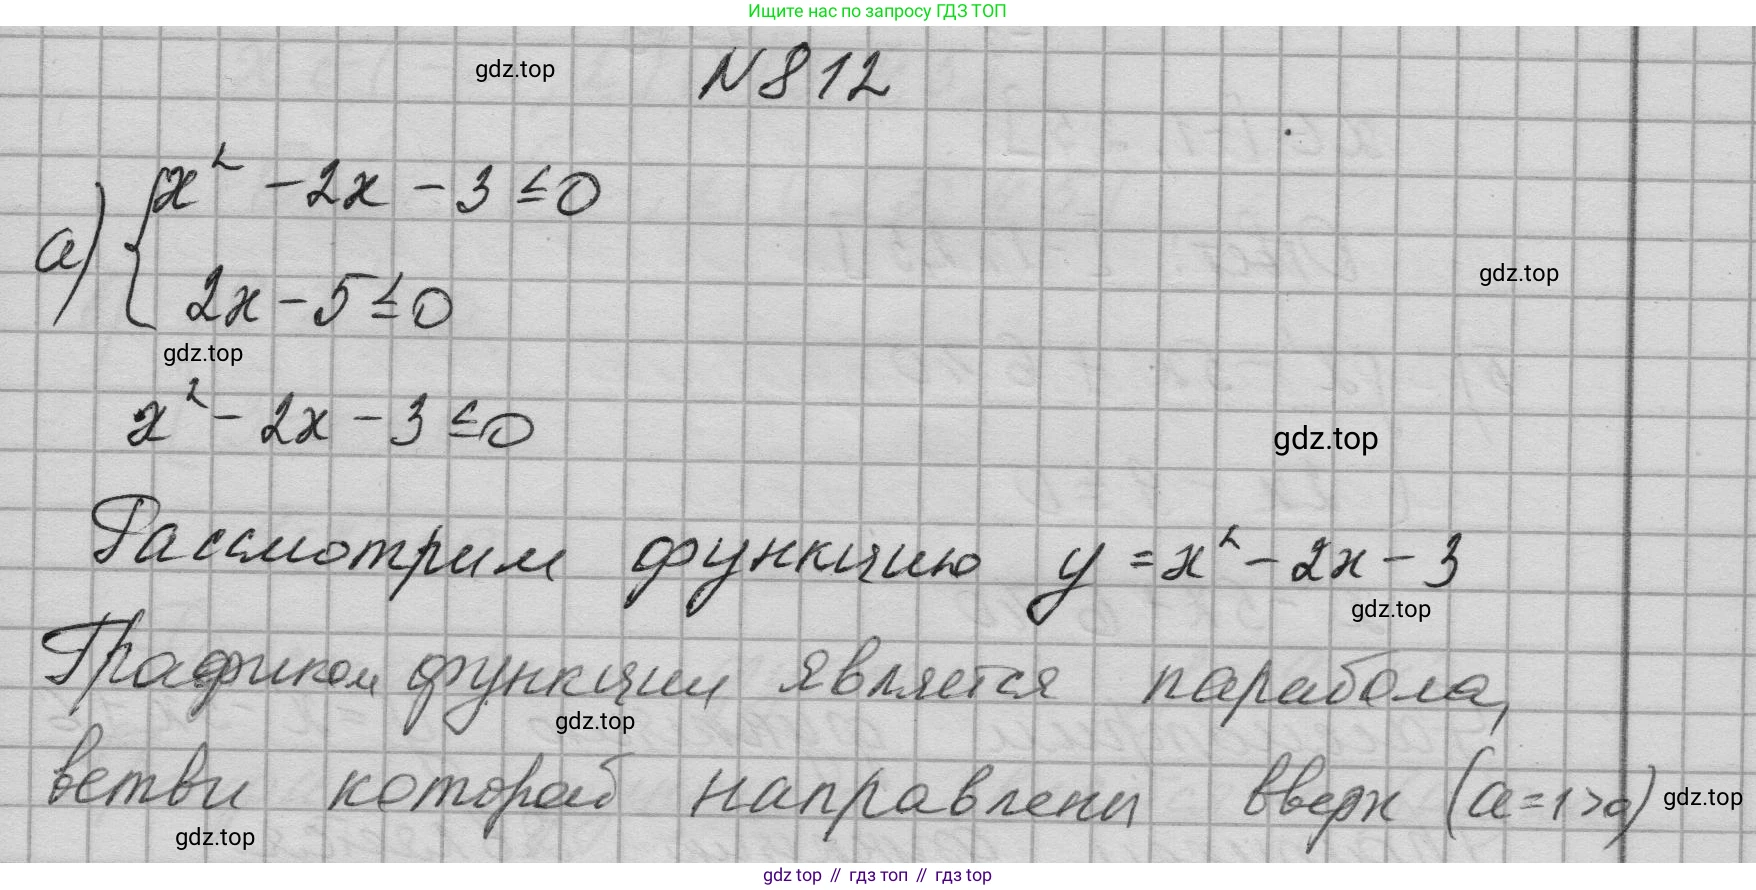 Ищите нас по запросу ГДЗ ТОП
gdz.top
N 812
а) { x² - 2x - 3 ≤ 0
gdz.top
2x - 5 ≤ 0
gdz.top
x² - 2x - 3 ≤ 0
gdz.top
Рассмотрим функцию y = x² - 2x - 3
gdz.top
Графиком функции является парабола,
gdz.top
ветви которой направлены вверх (a = 1 > 0)
gdz.top
gdz.top
gdz top // гдз топ // гдз top